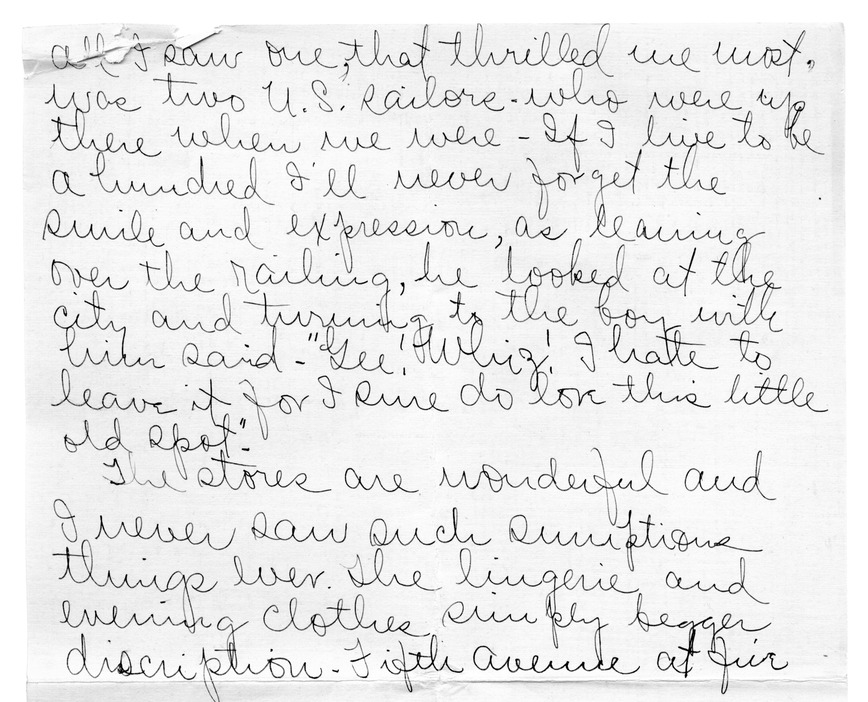 all I saw one, that thrilled me most,
was two U.S. sailors - who were up
there when we were - If I live to be
a hundred I'll never forget the
smile and expression, as leaning
over the railing, he looked at the
city and turning to the boy with
him said - "Gee! Whiz! I hate to
leave it for I sure do love this little
old spot".
The stores are wonderful and
I never saw such sumptions
things ever. The lingerie and
evening clothes simply begger
discription - Fifth Avenue at five